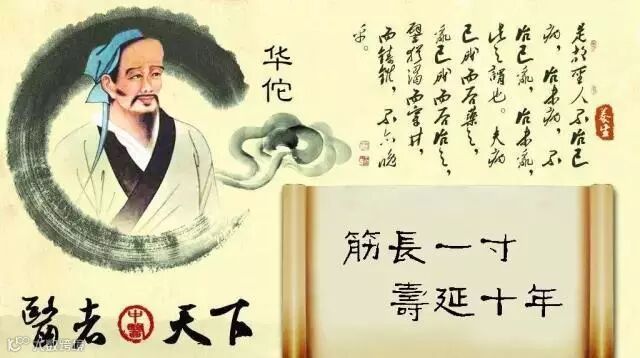 华佗
是故聖人不治已
病，治未病，不
治已亂，治未亂，
此之謂也。夫病
已成而后藥之，
亂已成而后治之，
譬猶渴而穿井，
而鑄錐，不亦晚
乎。
養生
筋長一寸
壽延十年
醫者中醫天下
大数跨境